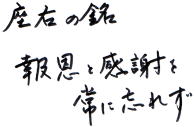 座右の銘
報恩と感謝を
常に忘れず